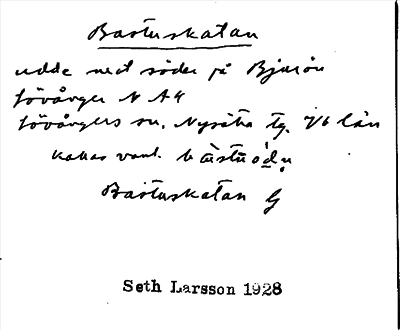 Bastuskatan
udde mot söder på Bjurön
Lövånger N A4
Lövångers sn. Nysätra tg. Vb län
kallas vanl. bástuódn
Bastuskatan G
Seth Larsson 1928